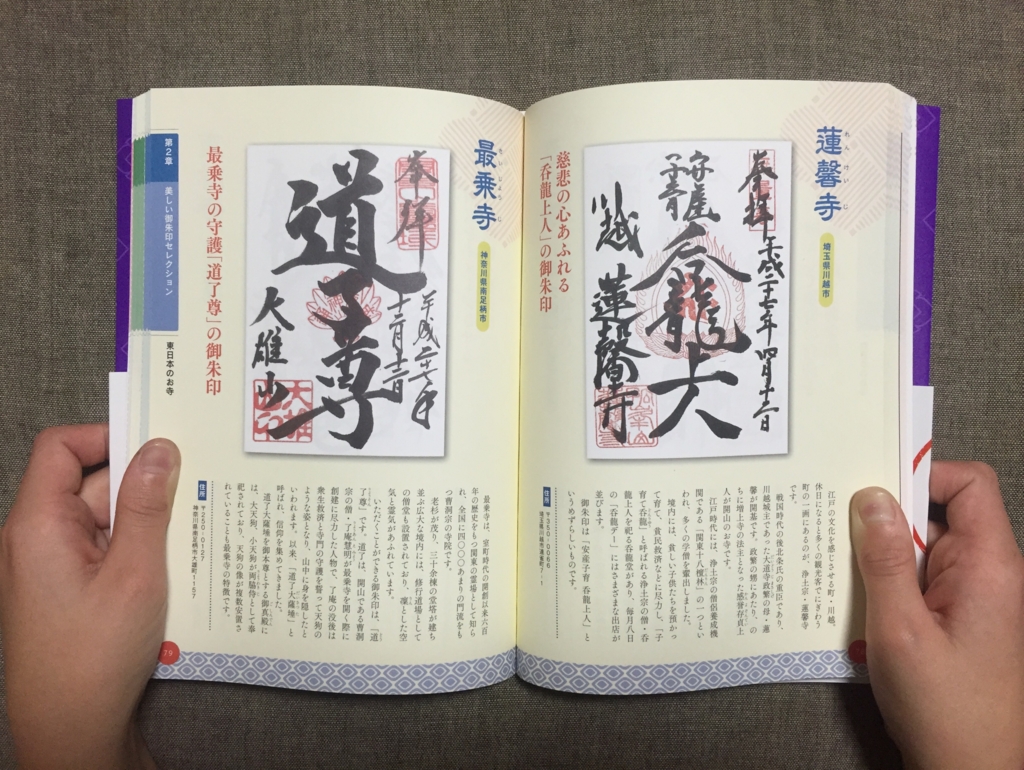 蓮馨寺
れんけいじ
埼玉県川越市
慈悲の心あふれる
「呑龍上人」の御朱印
奉拝
平成二十七年四月十二日
安産
子育
呑龍上人
川越
蓮馨寺
江戸の文化を感じさせる町・川越。
休日になると多くの観光客でにぎわう
町の一画にあるのが、浄土宗・蓮馨寺
です。
戦国時代の後北条氏の重臣であり、
川越城主でもあった大道寺政繁の母・蓮
馨が開基です。政繁の甥にあたり、の
ちに増上寺の法主となった感誉存貞上
人が開山のお寺です。
江戸時代には、浄土宗の僧侶養成機
関である「関東十八檀林」の一つとい
われ、多くの学僧を輩出しました。
境内には、貧しい子供たちを預かっ
て育て、貧民救済などに尽力し、「子
育て呑龍」と呼ばれる浄土宗の僧・呑
龍上人を祀る呑龍堂があり、毎月八日
の「呑龍デー」にはさまざまな出店が
並びます。
御朱印は「安産子育 呑龍上人」と
いうめずらしいものです。
住所
〒350-0066
埼玉県川越市連雀町7-1
最乗寺
さいじょうじ
神奈川県南足柄市
奉拝
平成二十六年
十二月十二日
道了尊
大雄山
最乗寺の守護「道了尊」の御朱印
最乗寺は、室町時代の開創以来六百
年の歴史をもつ関東の霊場として知ら
れ、全国に四〇〇〇あまりの門流をも
つ曹洞宗の寺院です。
老杉が茂り、三十余棟の堂塔が建ち
並ぶ広大な境内には、修行道場として
の僧堂も設置されており、凜とした空
気と霊気があふれています。
いただくことができる御朱印は、「道
了尊」です。道了は、開山である曹洞
宗の僧・了庵慧明が最乗寺を開く際に
創建に尽力した人物で、了庵の没後は
衆生救済と寺門の守護を誓って天狗の
ような姿となり、山中に身を隠したと
いわれます。以来、「道了大薩埵」と
呼ばれ、信仰を集めてきました。
道了大薩埵を御本尊とする御真殿に
は、大天狗、小天狗が両脇侍として奉
祀されており、天狗の像が複数安置さ
れていることも最乗寺の特徴です。
住所
〒250-0127
神奈川県南足柄市大雄町1157
第2章
美しい御朱印セレクション
東日本のお寺
79